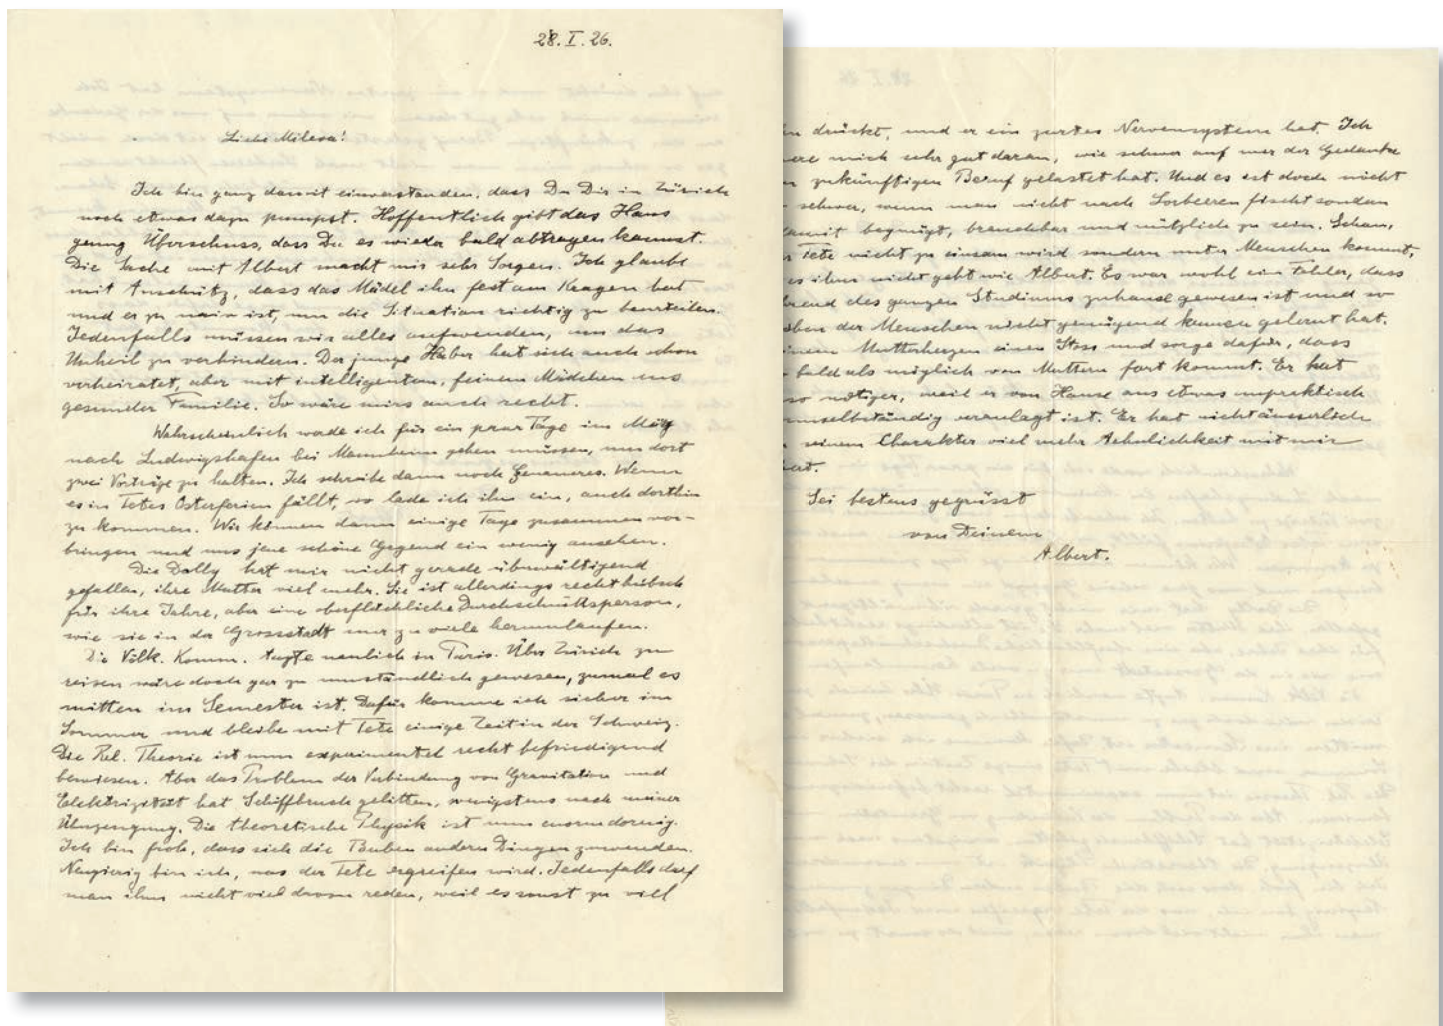 28. I. 26.
Liebe Mileva!
Ich bin ganz damit einverstanden, dass Du Dir in Zürich
noch etwas dazu pumpst. Hoffentlich gibt das Haus
genug Überschuss, dass Du es wieder bald abtragen kannst.
Die Sache mit Albert macht mir sehr Sorgen. Ich glaube
mit Anschütz, dass das Mädel ihn fest am Kragen hat
und er zu naiv ist, um die Situation richtig zu beurteilen.
Jedenfalls müssen wir alles aufwenden, um das
Unheil zu verhindern. Der junge Haber hat sich auch schon
verheiratet, aber mit intelligentem, feinem Mädchen aus
gesunder Familie. So wäre mirs auch recht.
Wahrscheinlich werde ich für ein paar Tage im März
nach Ludwigshafen bei Mannheim gehen müssen, um dort
zwei Vorträge zu halten. Ich schreibe dann noch Genaueres. Wenn
es in Tetes Osterferien fällt, so lade ich ihn ein, auch dorthin
zu kommen. Wir können dann einige Tage zusammen ver-
bringen und uns jene schöne Gegend ein wenig ansehen.
Die Dolly hat mir nicht gerade überwältigend
gefallen, ihre Mutter viel mehr. Sie ist allerdings recht hübsch
für ihre Jahre, aber eine oberflächliche Durchschnittsperson,
wie sie in der Grossstadt nur zu viele herumlaufen.
Die Völk. Komm. tagte neulich in Paris. Über Zürich zu
reisen wäre doch gar zu umständlich gewesen, zumal es
mitten im Semester ist. Dafür komme ich sicher im
Sommer und bleibe mit Tete einige Zeit in der Schweiz.
Die Rel. Theorie ist nun experimentell recht befriedigend
bewiesen. Aber das Problem der Verbindung von Gravitation und
Elektrizität hat Schiffbruch gelitten, wenigstens nach meiner
Überzeugung. Die theoretische Physik ist nun enorm dornig.
Ich bin froh, dass sich die Buben andern Dingen zuwenden.
Neugierig bin ich, was der Tete ergreifen wird. Jedenfalls darf
man ihm nicht viel davon reden, weil es sonst zu viel
drückt, und er ein zartes Nervensystem hat. Ich
mich sehr gut daran, wie schwer auf mir der Gedanke
zukünftigen Beruf gelastet hat. Und es ist doch nicht
schwer, wenn man nicht nach Lorbeeren fischt sondern
damit begnügt, brauchbar und nützlich zu sein. Schau,
Tete nicht zu einsam wird sondern unter Menschen kommt,
es ihm nicht geht wie Albert. Es war wohl ein Fehler, dass
des ganzen Studiums zuhause gewesen ist und so
der Menschen nicht genügend kennen gelernt hat.
Mutterherzen einen Stoss und sorge dafür, dass
bald als möglich von Muttern fort kommt. Er hat
so nötiger, weil er von Hause aus etwas unpraktisch
unselbständig veranlagt ist. Er hat nicht äusserlich
seinem Charakter viel mehr Aehnlichkeit mit mir
hat.
Sei bestens gegrüsst
von Deinem
Albert.